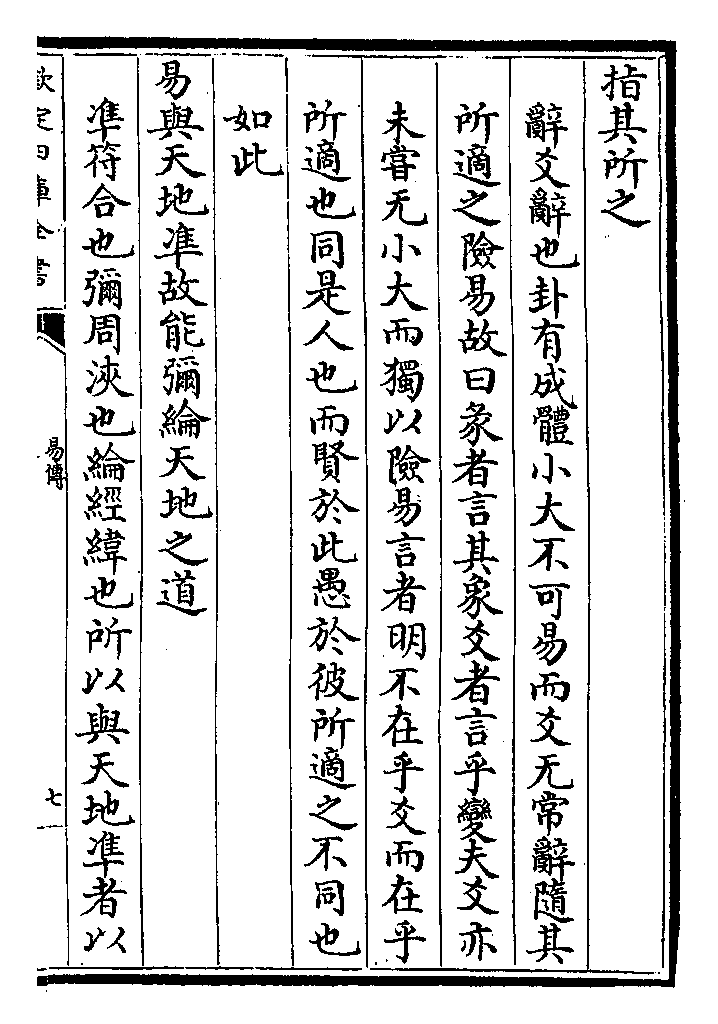 指其所之
辭爻辭也卦有成體小大不可易而爻无常辭隨其
所適之險易故曰彖者言其象爻者言乎變夫爻亦
未嘗无小大而獨以險易言者明不在乎爻而在乎
所適也同是人也而賢於此愚於彼所適之不同也
如此
易與天地凖故能彌綸天地之道
凖符合也彌周浹也綸經緯也所以與天地凖者以
欽定四庫全書
易傳
七